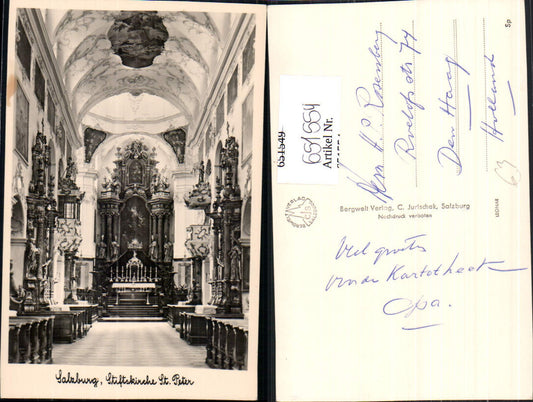 Salzburg, Stiftskirche St. Peter
651549
651554
Artikel Nr.
Rosenberg
Roelofsstr 74
Den Haag
Holland
63
Sp
Bergwelt Verlag, C. Jurischek, Salzburg
Nachdruck verboten
LEONAR
Veel groeten
van de Kartotheek
Opa.